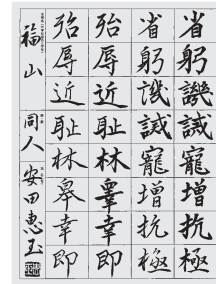 省躬譏誡寵增抗極
省躬譏誡寵增抗極
殆辱近耻林皋幸即
殆辱近耻林皋幸即
福山 同人 安田惠玉